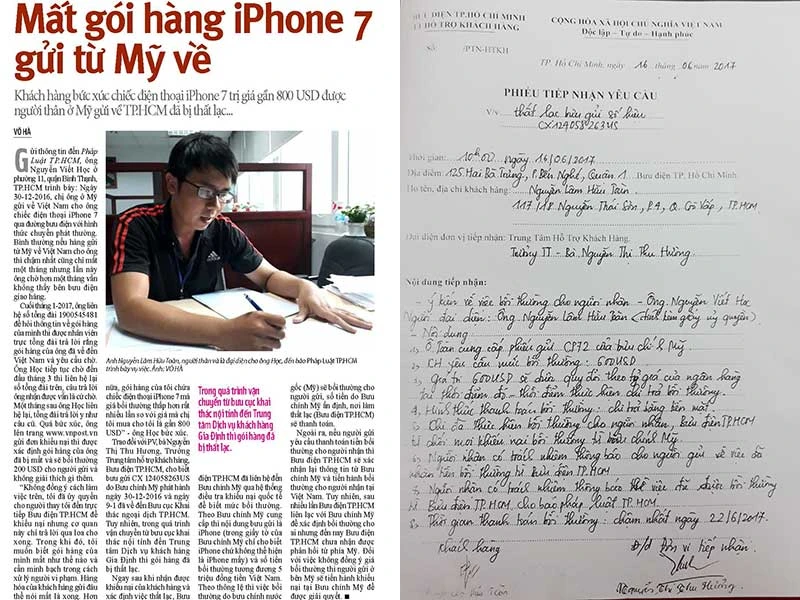 Mất gói hàng iPhone 7
gửi từ Mỹ về
Khách hàng bức xúc chiếc điện thoại iPhone 7 trị giá gần 800 USD được
người thân ở Mỹ gửi về TP.HCM đã bị thất lạc...
VÕ HÀ
Gửi thông tin đến Pháp
Luật TP.HCM, ông
Nguyễn Viết Học ở
phường 11, quận Bình Thạnh,
TP.HCM trình bày: Ngày
30-12-2016, chị ông ở Mỹ
gửi về Việt Nam cho ông
chiếc điện thoại iPhone 7
qua đường bưu điện với hình
thức chuyển phát thường.
Bình thường nếu hàng gửi
từ Mỹ về Việt Nam cho ông
thì chậm nhất cũng chỉ mất
một tháng nhưng lần này
ông chờ hơn một tháng vẫn
không thấy bên bưu điện
giao hàng.
Cuối tháng 1-2017, ông liên
hệ số tổng đài 1900545481
để hỏi thông tin về gói hàng
của mình thì được nhân viên
trực tổng đài trả lời rằng
gói hàng của ông đã về đến
Việt Nam và yêu cầu chờ.
Ông Học tiếp tục chờ đến
đầu tháng 3 thì liên hệ lại
số tổng đài trên, câu trả lời
ông nhận được vẫn là cứ chờ.
Một tháng sau ông Học liên
hệ lại, tổng đài trả lời y như
câu cũ. Quá bức xúc, ông
lên trang www.vnpost.vn
gửi đơn khiếu nại thì được
xác định gói hàng của ông
đã bị mất và sẽ bồi thường
200 USD cho người gửi và
không giải thích gì thêm.
"Không đồng ý cách làm
việc trên, tôi đã ủy quyền
cho người thay tôi đến trực
tiếp Bưu điện TP.HCM để
khiếu nại nhưng cơ quan
này chỉ trả lời qua loa cho
xong. Trong khi đó, tôi
muốn biết gói hàng của
mình mất như thế nào và
cần minh bạch trong cách
xử lý người vi phạm. Hàng
hóa của khách hàng gửi đâu
thể nói mất là xong. Hơn
Anh Nguyễn Lâm Hữu Toàn, người thân và là đại diện cho ông Học, đến báo Pháp Luật TP.HCM
trình bày vụ việc. Ảnh: VÕ HÀ
nữa, gói hàng của tôi chứa
chiếc điện thoại iPhone 7 mà
giá bồi thường thấp hơn rất
nhiều lần so với giá mà chị
tôi mua cho tôi là gần 800
USD" - ông Học bức xúc.
Trao đổi với PV, bà Nguyễn
Thị Thu Hương, Trưởng
Trung tâm Hỗ trợ khách hàng,
Bưu điện TP.HCM, cho biết
bưu gửi CX 124058263US
do Bưu chính Mỹ phát hành
ngày 30-12-2016 và ngày
9-1 đã về đến Bưu cục Khai
thác ngoại dịch TP.HCM.
Tuy nhiên, trong quá trình
vận chuyển từ bưu cục khai
thác nội tỉnh đến Trung
tâm Dịch vụ khách hàng
Gia Định thì gói hàng đã
bị thất lạc.
Ngay sau khi nhận được
khiếu nại của khách hàng và
xác định việc thất lạc, Bưu
Trong quá trình vận
chuyển từ bưu cục khai
thác nội tỉnh đến Trung
tâm Dịch vụ khách hàng
Gia Định thì gói hàng đã
bị thất lạc.
điện TP.HCM đã liên hệ đến
Bưu chính Mỹ qua hệ thống
điều tra khiếu nại quốc tế
để biết mức bồi thường.
Theo Bưu chính Mỹ cung
cấp thì nội dung bưu gửi là
iPhone (trong giấy tờ của
Bưu chính Mỹ chỉ cho biết
iPhone chứ không thể hiện
là iPhone mấy) và số tiền
bồi thường tương đương 5
triệu đồng tiền Việt Nam.
Theo thông lệ thì việc bồi
thường do bưu chính nước
gốc (Mỹ) sẽ bồi thường cho
người gửi, số tiền do Bưu
Chính Mỹ ấn định, nơi làm
thất lạc (Bưu điện TP.HCM)
sẽ thanh toán.
Ngoài ra, nếu người gửi
yêu cầu thanh toán tiền bồi
thường cho người nhận thì
Bưu điện TP.HCM sẽ xác
nhận lại thông tin từ Bưu
chính Mỹ và tiến hành bồi
thường cho người nhận tại
Việt Nam. Tuy nhiên, sau
nhiều lần Bưu điện TP.HCM
liên lạc với Bưu chính Mỹ
để xác định bồi thường cho
ai nhưng đến nay Bưu điện
TP.HCM chưa nhận được
phản hồi từ phía Mỹ. Đối
với việc không đồng ý giá
bồi thường thì người gửi ở
bên Mỹ sẽ tiến hành khiếu
nại tại Bưu chính Mỹ để
được giải quyết. ■
BƯU ĐIỆN TP.HỒ CHÍ MINH
HỖ TRỢ KHÁCH HÀNG
CỘNG HÒA XÃ HỘI CHỦ NGHĨA VIỆT NAM
Độc lập – Tự do – Hạnh phúc
Số: /PTN-HTKH
TP. Hồ Chí Minh, ngày 16 tháng 06 năm 2017
PHIẾU TIẾP NHẬN YÊU CẦU
V/v thất lạc bưu gửi số hiệu
CX124058263US
Thời gian: 10h00 ngày 16/06/2017
Địa điểm: 125 Hai Bà Trưng, P. Bến Nghé, Quận 1. Bưu điện TP. Hồ Chí Minh.
Họ tên, địa chỉ khách hàng: Nguyễn Lâm Hữu Toàn
117/18 Nguyễn Thái Sơn, P.4, Q. Gò Vấp, TP.HCM
Đại diện đơn vị tiếp nhận: Trung Tâm Hỗ Trợ Khách Hàng.
Trưởng TT - Bà Nguyễn Thị Thu Hương
Nội dung tiếp nhận:
- Ý kiến về việc bồi thường cho người nhận - Ông Nguyễn Viết Học
Người đại diện: Ông Nguyễn Lâm Hữu Toàn (đính kèm giấy ủy quyền)
- Nội dung
1. Ô Toàn cung cấp phiếu gửi CP72 của bưu chính Mỹ.
2. KH yêu cầu mức bồi thường: 600USD
3. Giá trị 600USD sẽ được quy đổi theo tỷ giá của ngân hàng
tại thời điểm đó - thời điểm thực hiện chi trả bồi thường.
4. Hình thức thanh toán bồi thường: chi trả bằng tiền mặt.
5. Chỉ đã thực hiện bồi thường cho người nhận, Bưu điện TP.HCM
từ chối mọi khiếu nại bồi thường từ bưu chính Mỹ.
6. Người nhận có trách nhiệm thông báo cho người gửi về việc đã
nhận tiền bồi thường từ Bưu điện TP.HCM
7. Người nhận có trách nhiệm thông báo về việc đã được bồi thường
từ Bưu điện TP.HCM cho báo pháp luật TP.HCM.
8. Thời gian thanh toán bồi thường: chậm nhất ngày 22/6/2017.
Khách hàng
Đ/d Đơn vị tiếp nhận
Nguyễn Thị Thu Hương